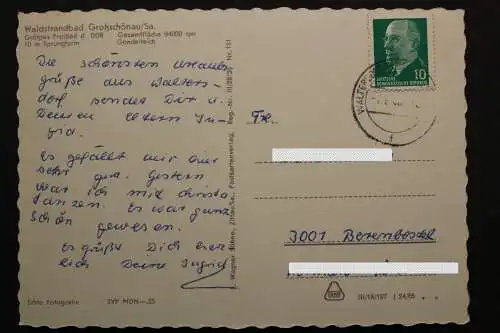 Waldstrandbad Großschönau/Sa.
Größtes Freibad d. DDR Gesamtfläche 94000 qm
10 m Sprungturm Gondelteich
Die schönsten Urlaubs
grüße aus Walters-
dorf sendet Dir u.
Deinen Eltern In-
grid.
Es gefällt mir hier
sehr gut. Gestern
war ich mit Christa
tanzen. Es war ganz
schön gewesen.
Es grüßt Dich herz
lich Deine Ingrid
Echte Fotografie
EVP MDN —.25
A. Wagner Söhne, Zittau/Sa., Postkartenverlag, Reg.-Nr.
DEUTSCHE DEMOKRATISCHE REPUBLIK
10
WALTERS
Frl.
3001 Berenbostel
III/18/197 24/66